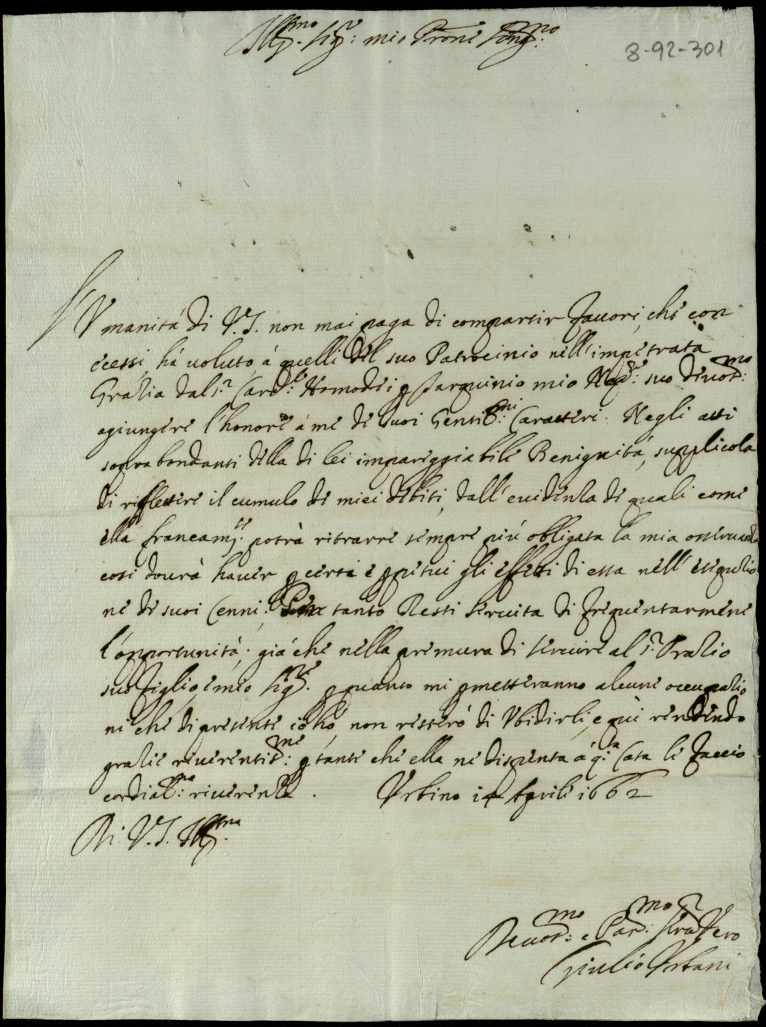 Ill.mo Sig.r mio P'rone Cong.mo
8-92-301
L'Vmanità di V.S. non mai paga di compartir fauori, che con
ecessi, hà uoluto à quelli del suo Patrocinio nell'impetrata
Gratia dal s.r Card.le Homodei p Tarquinio mio Nep.e suo deuot.mo
agiungere l'honore à me de suoi Gentil.mi Caratteri. Negli atti
soprabondanti della di lei impareggiabile Benignità, supplicola
di riflettere il cumulo de miei debiti, dall'euidenza de quali come
ella francam.te potrà ritrarre sempre più obligata la mia osseruanza
così dourà hauer p certi e p suoi gli effetti di essa nell'esequtio
ne de suoi Cenni; Per tanto Resti seruita di frequentarmene
l'opportunità, già che nella premura di seruire al s.r Oratio
suo figlio e mio Sig.re p quanto mi pmetteranno alcune occupatio
ni che di presente iò hò, non resterò di Vbidirle, e quì rendendo
gratie reuerentis.me p tante che ella ne dispensa à q.a Casa le faccio
cordial.ma riuerenza. Vrbino 14 Aprile 1662
Di V.S. Ill.ma
Deuot.mo e Par.mo Seru.r Vero
Giulio Vrbani